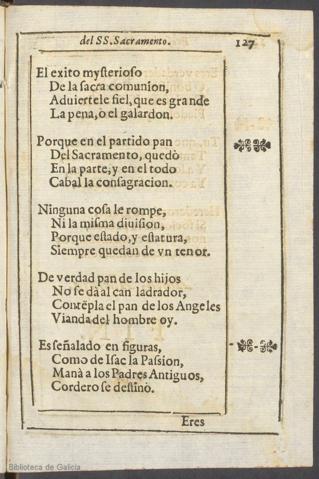 del SS. Sacramento. 127
El exito myſterioſo
De la ſacra comunion,
Aduiertele fiel, que es grande
La pena, ò el galardon.
Porque en el partido pan
Del Sacramento, quedò
En la parte, y en el todo
Cabal la conſagracion.
Ninguna coſa le rompe,
Ni la miſma diuiſion,
Porque eſtado, y eſtatura,
Siempre quedan de vn tenor.
De verdad pan de los hijos
No ſe dà al can ladrador,
Contẽpla el pan de los Angeles
Vianda del hombre oy.
Es ſeñalado en figuras,
Como de Iſac la Paſsion,
Manà a los Padres Antiguos,
Cordero ſe deſtinò.
Eres
Biblioteca de Galicia